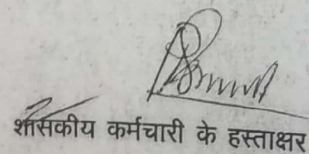 शासकीय कर्मचारी के हस्ताक्षर